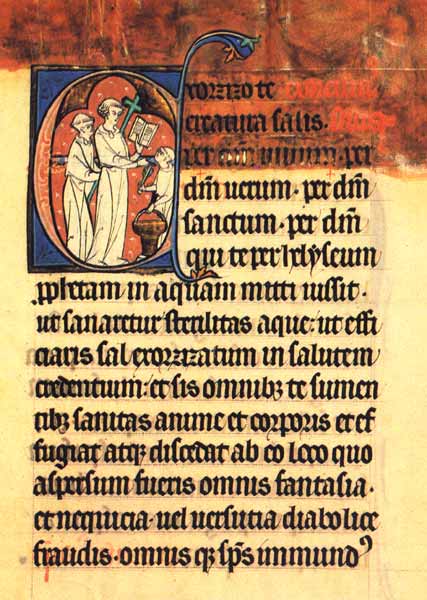 Exorzizo te
creatura salis.
per dm̄ uiuum. per
dm̄ uerum. per dm̄
sanctum. per dm̄
qui te per helyseum
ꝓphetam in aquam mitti iussit.
ut sanaretur sterilitas aque: ut effi
ciaris sal exorzizatum in salutem
credentium: et sis omnibꝫ te sumen
tibꝫ sanitas anime et corporis et ef
fugiat atqꝫ discedat ab eo loco quo
aspersum fueris omnis fantasia.
et nequicia. uel uersutia diabolice
fraudis. omnis qꝫ sp̄s inmundꝰ